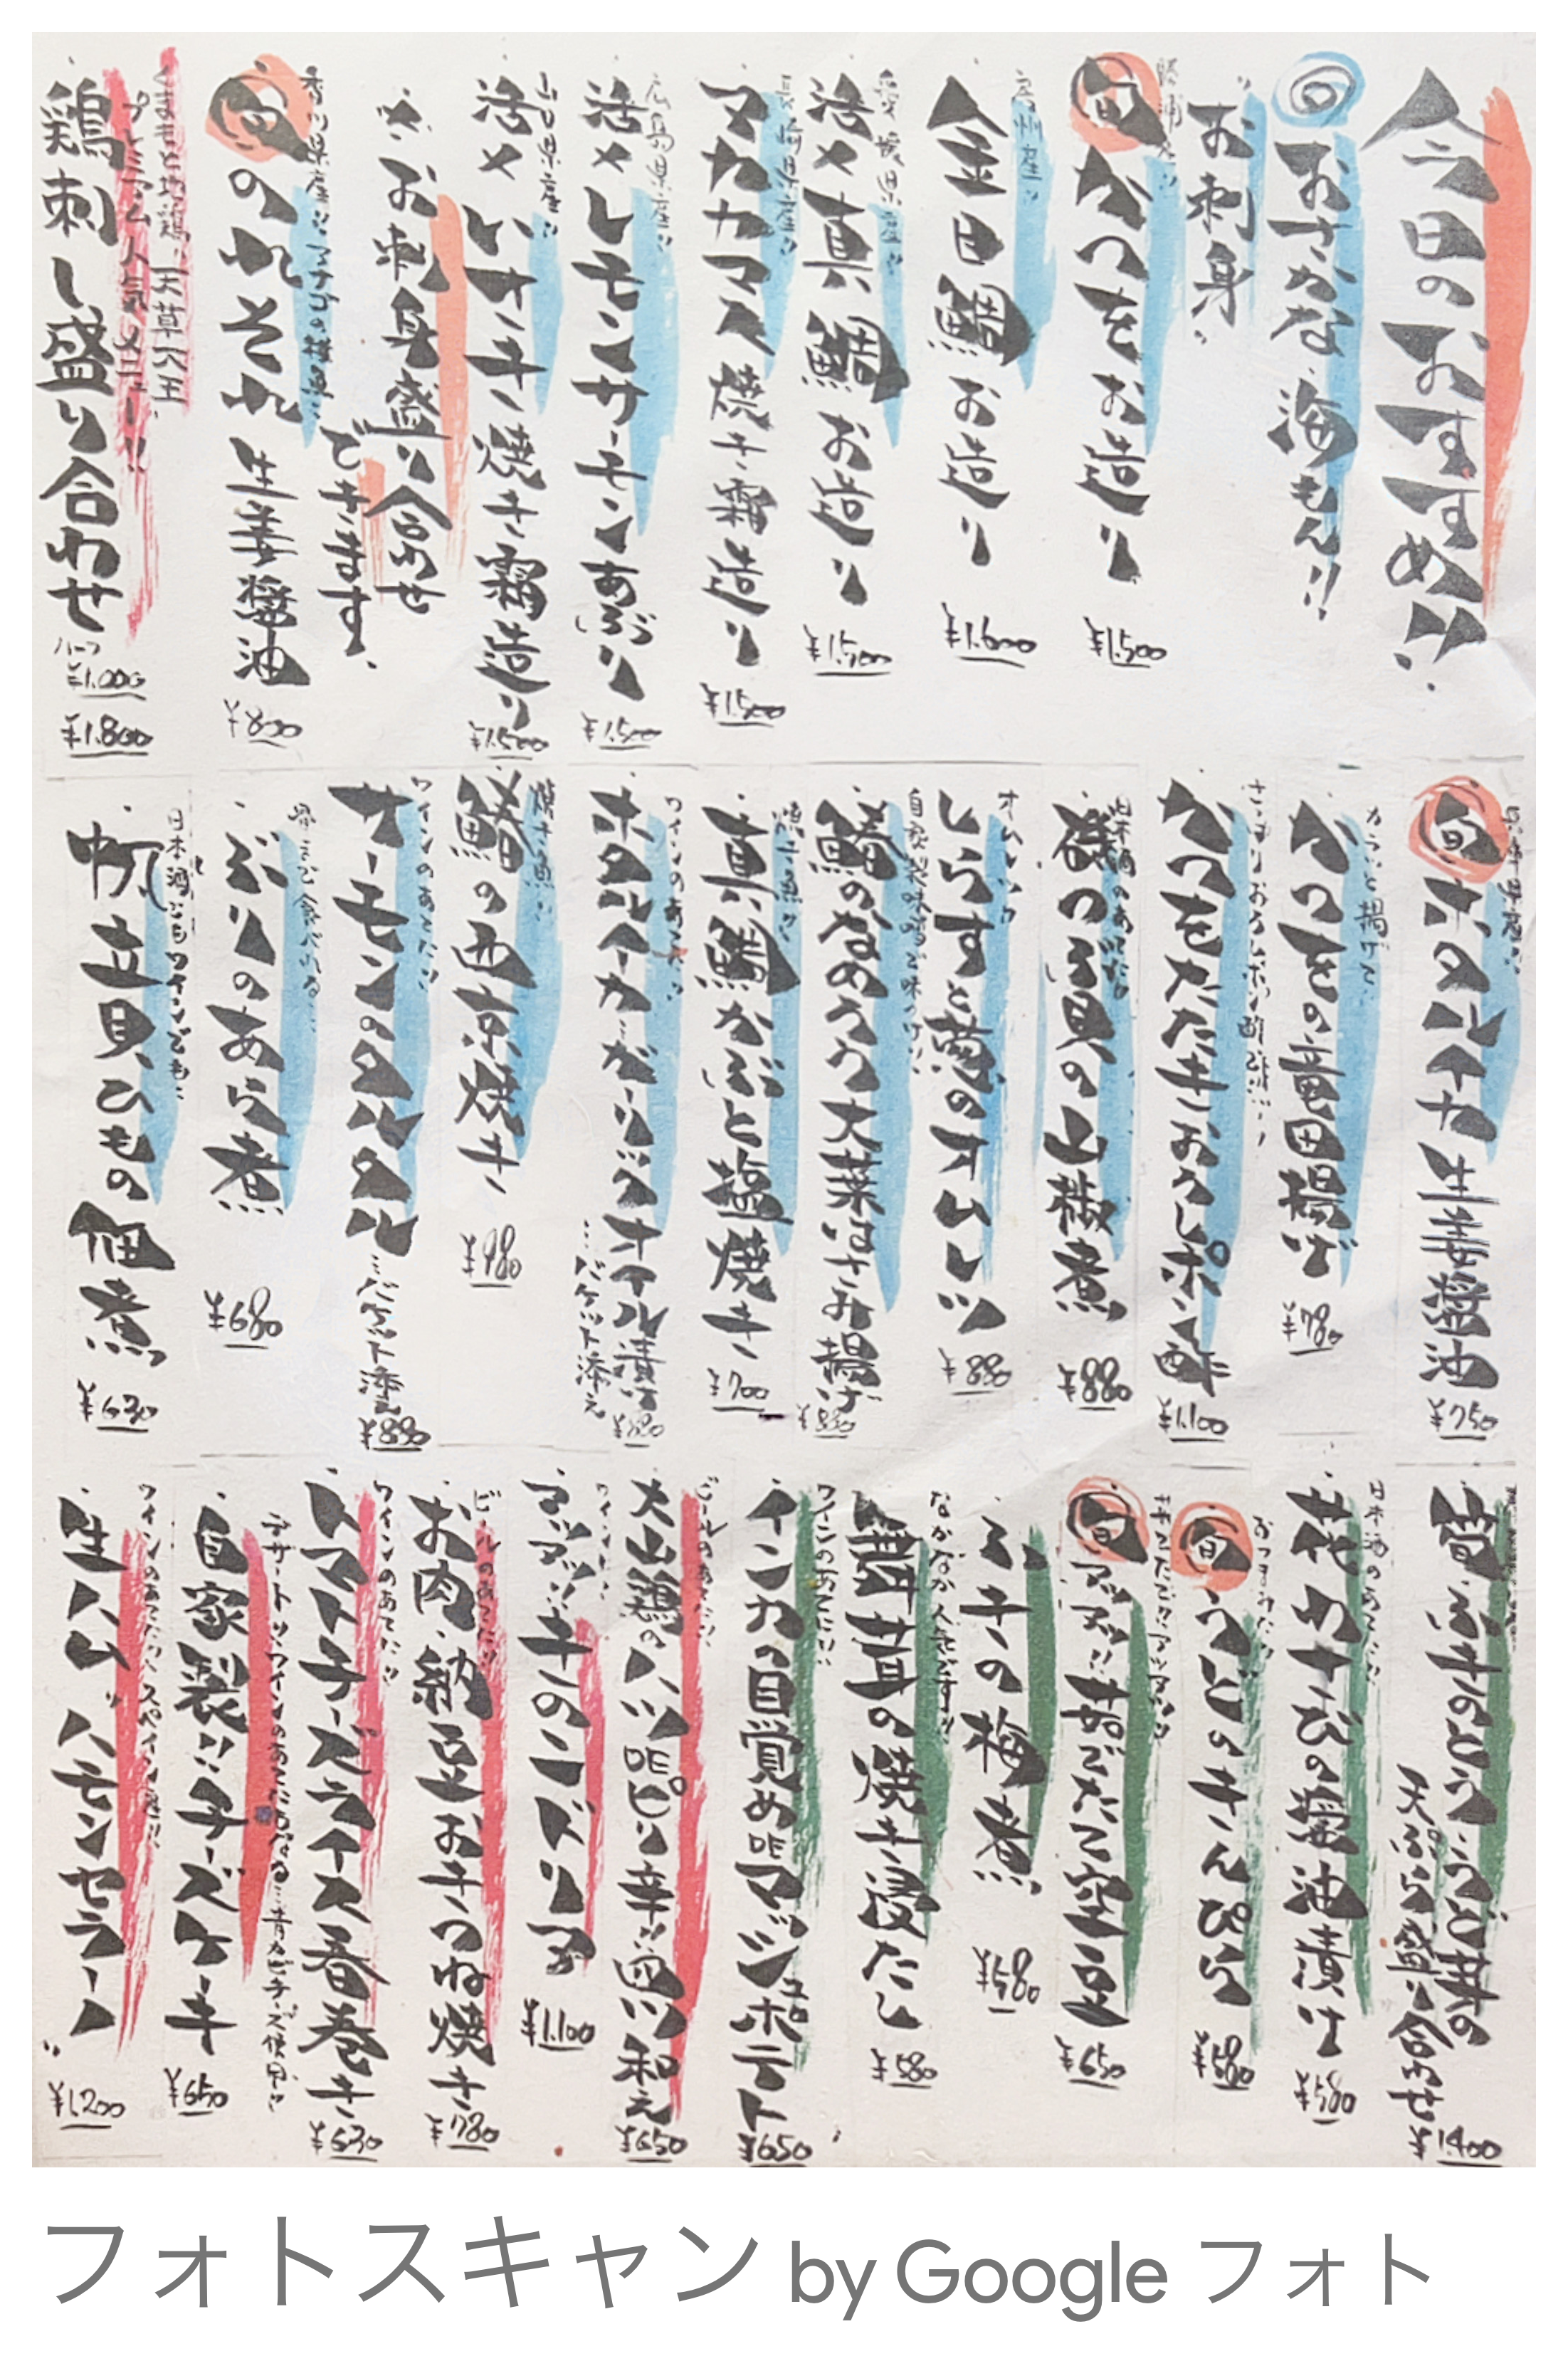 今日のおすすめ!!
旬 おさかな、海もん!!
お刺身
勝浦産!!
旬 かつをお造り
¥1.500
房州産!!
金目鯛お造り
¥1.600
愛媛県産!!
活〆真鯛お造り
¥1.500
長崎県産!!
マカカマス焼き霜造り
¥1.500
広島県産!!
活〆レモンサーモンあぶり
¥1.500
山口県産!!
活〆いサキ焼き霜造り
¥1.500
お刺身盛り合わせ
できます、
香川県産!!アナゴの稚魚
旬 のれそれ 生姜醤油
¥800
くまもと地鶏!!天草大王
プレミアム人気メニュー!!
鶏刺し盛り合わせ
ハーフ
¥1.000
¥1.800
旬 ホタルイカ 生姜醤油
¥750
カラッと揚げて
かつをの竜田揚げ
¥780
かつをたたきおろしポン酢
¥1.100
日本酒のあてだ!!
磯つぶ貝の山椒煮
¥880
オムレツ
しらすと葱のオムレツ
¥880
自家製味噌で味つけ
鯵のなめろう大葉はさみ揚げ
¥880
焼き魚!!
真鯛かぶと塩焼き
¥700
ワインのあてだ!!
ホタルイカ…ガーリックオイル漬け
…バケット添え
¥880
焼き魚!!
鰆の西京焼き
¥980
ワインのあてだ!!
サーモンのタルタル
…バケット添え
¥880
骨まで食べれる
ぶりのあら煮
¥680
日本酒にもワインでも
帆立貝ひもの佃煮
¥630
筍、ふきのとう、うど、丼の
天ぷら盛り合わせ
¥1400
日本酒のあてだ!!
花わさびの醤油漬け
¥580
おつまみだ!!
旬 うどのきんぴら
¥580
旬 アツアツ!!茹でたて空豆
¥650
ふきの梅煮
¥580
なかなか人気です!!
舞茸の焼き浸だし
¥580
ワインのあてに!!
インカの目覚めDEマッシュポテト
¥650
ビールのあてだ!!
大山鶏のハツDEピリ辛ラー油和え
¥650
アツアツ!!チキンドリア
¥1.100
ビールのあてだ!!
お肉、納豆お・きつね焼き
¥780
ワインのあてだ!!
トマトチーズライス春巻き
¥630
デザート!!ワインのあてにもなる…青カビチーズ使用!!
自家製!!チーズケーキ
¥650
ワインのあてだ!!スペイン産!!
生ハム"ハモンセラーノ"
¥1.200
フォトスキャン by Google フォト